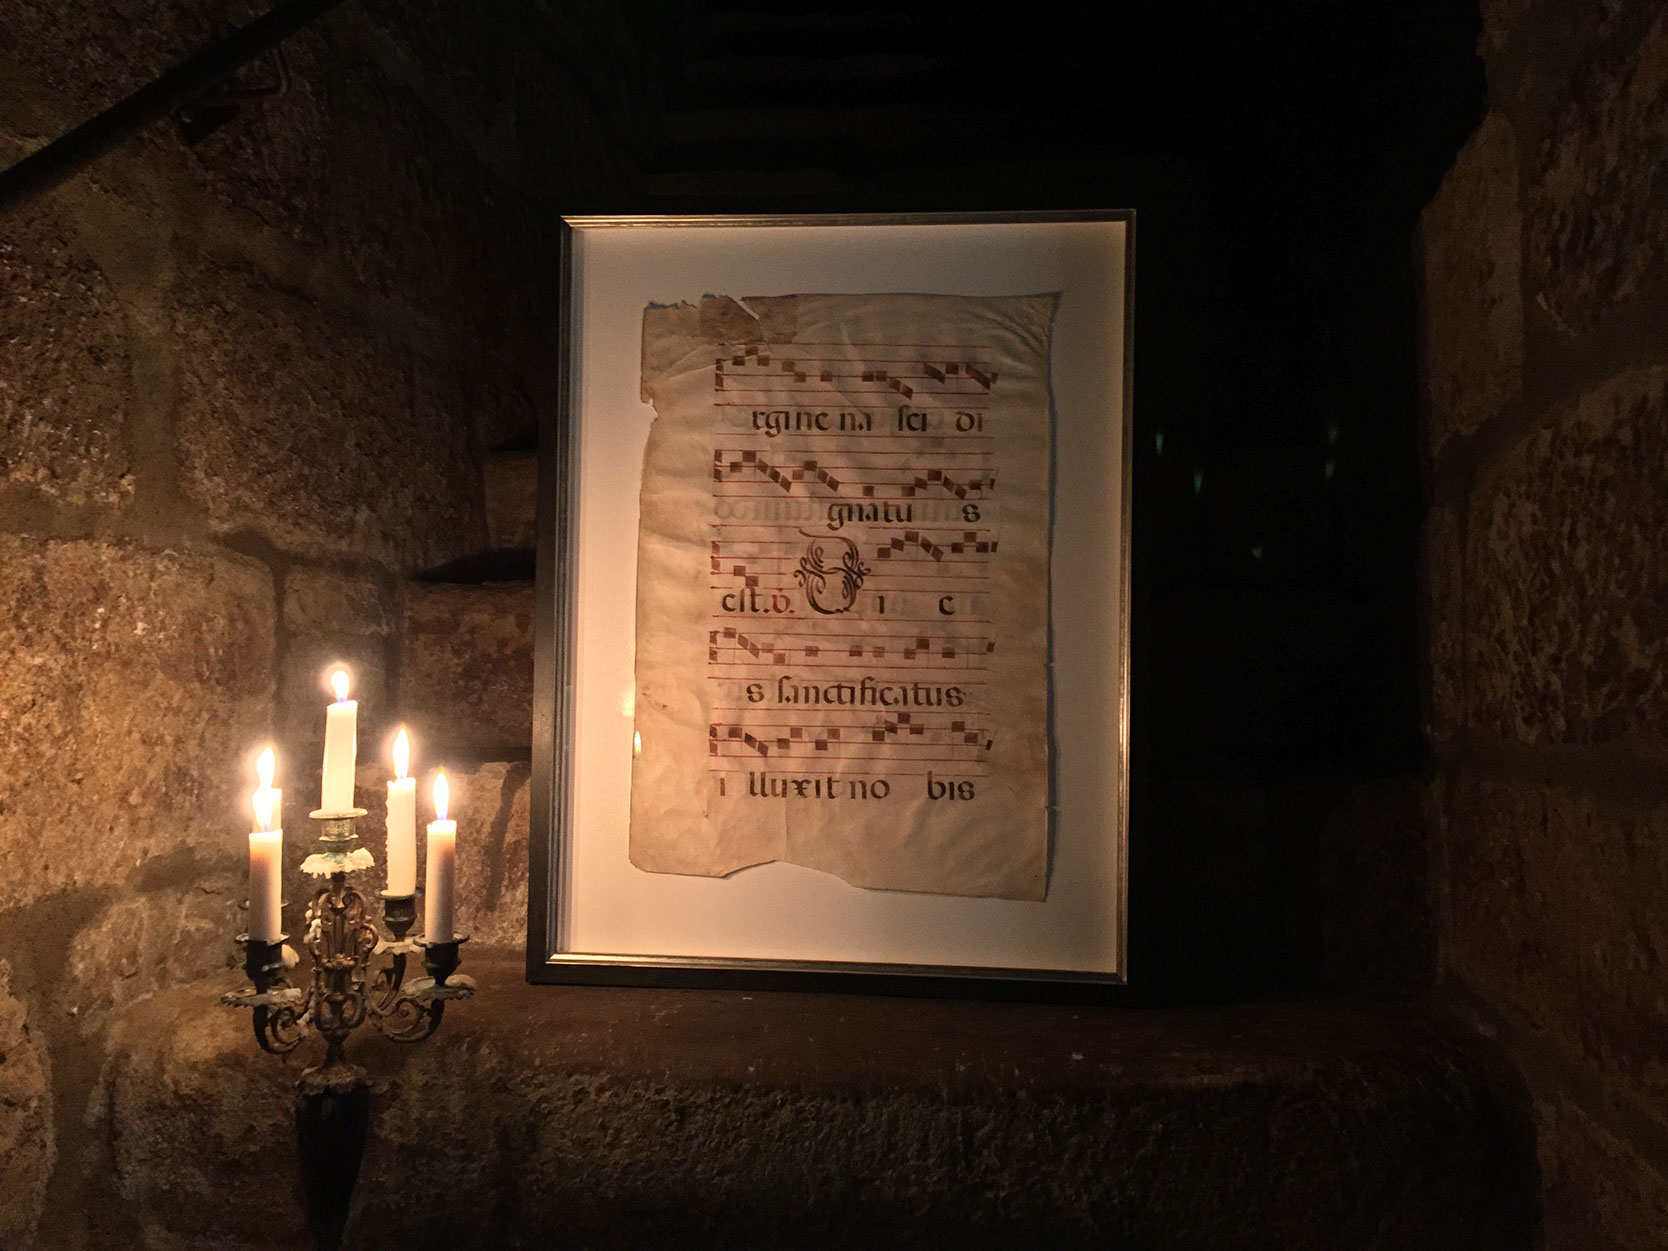 rgine na sci di
gnatu s
est. V. D i e
s sanctificatus
i lluxit no bis